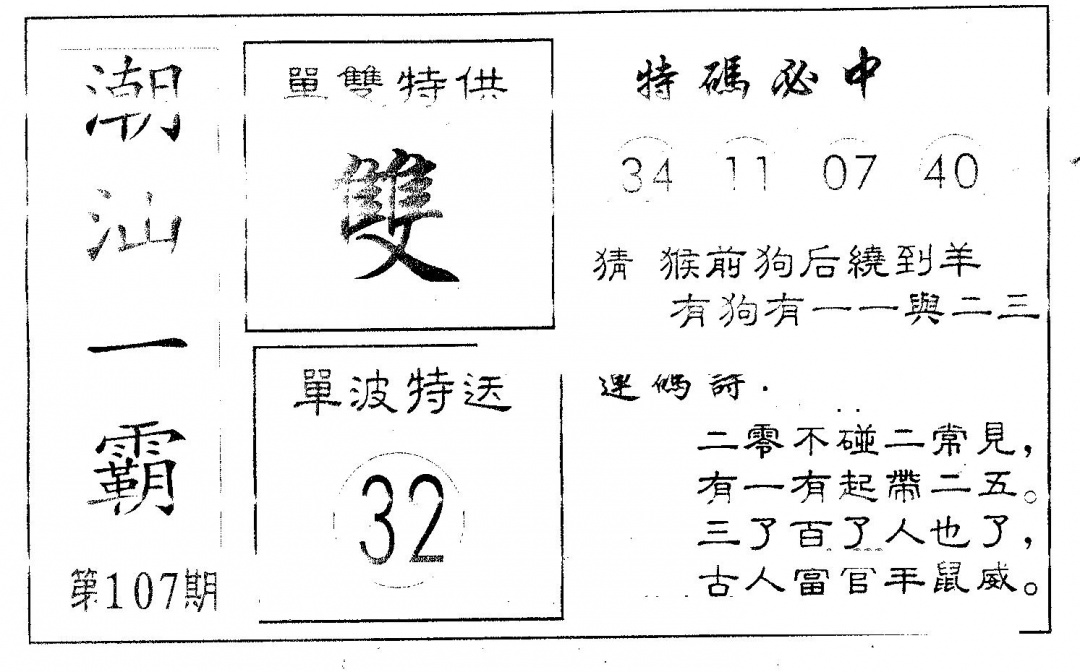 潮汕一霸
第107期
單雙特供
雙
單波特送
32
特碼必中
34 11 07 40
猜 猴前狗后繞到羊
有狗有一一與二三
連碼詩.
二零不碰二常見，
有一有起帶二五。
三了百了人也了，
古人富官平鼠威。